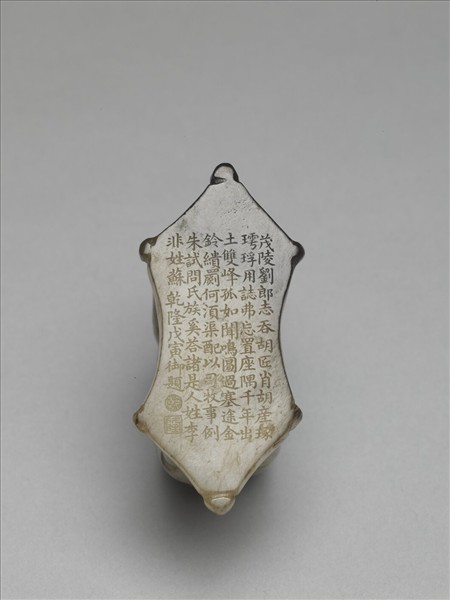 茂陵劉郎志吞胡匠肖胡產琢
㻬琈用誌弗忘置座隅千年出
土雙峰孤如聞鳴圖過塞途金
鈴繢罽何須渠配以牧事例
朱試問氏族奚答諸是人姓李
非姓蘇 乾隆戊寅御題